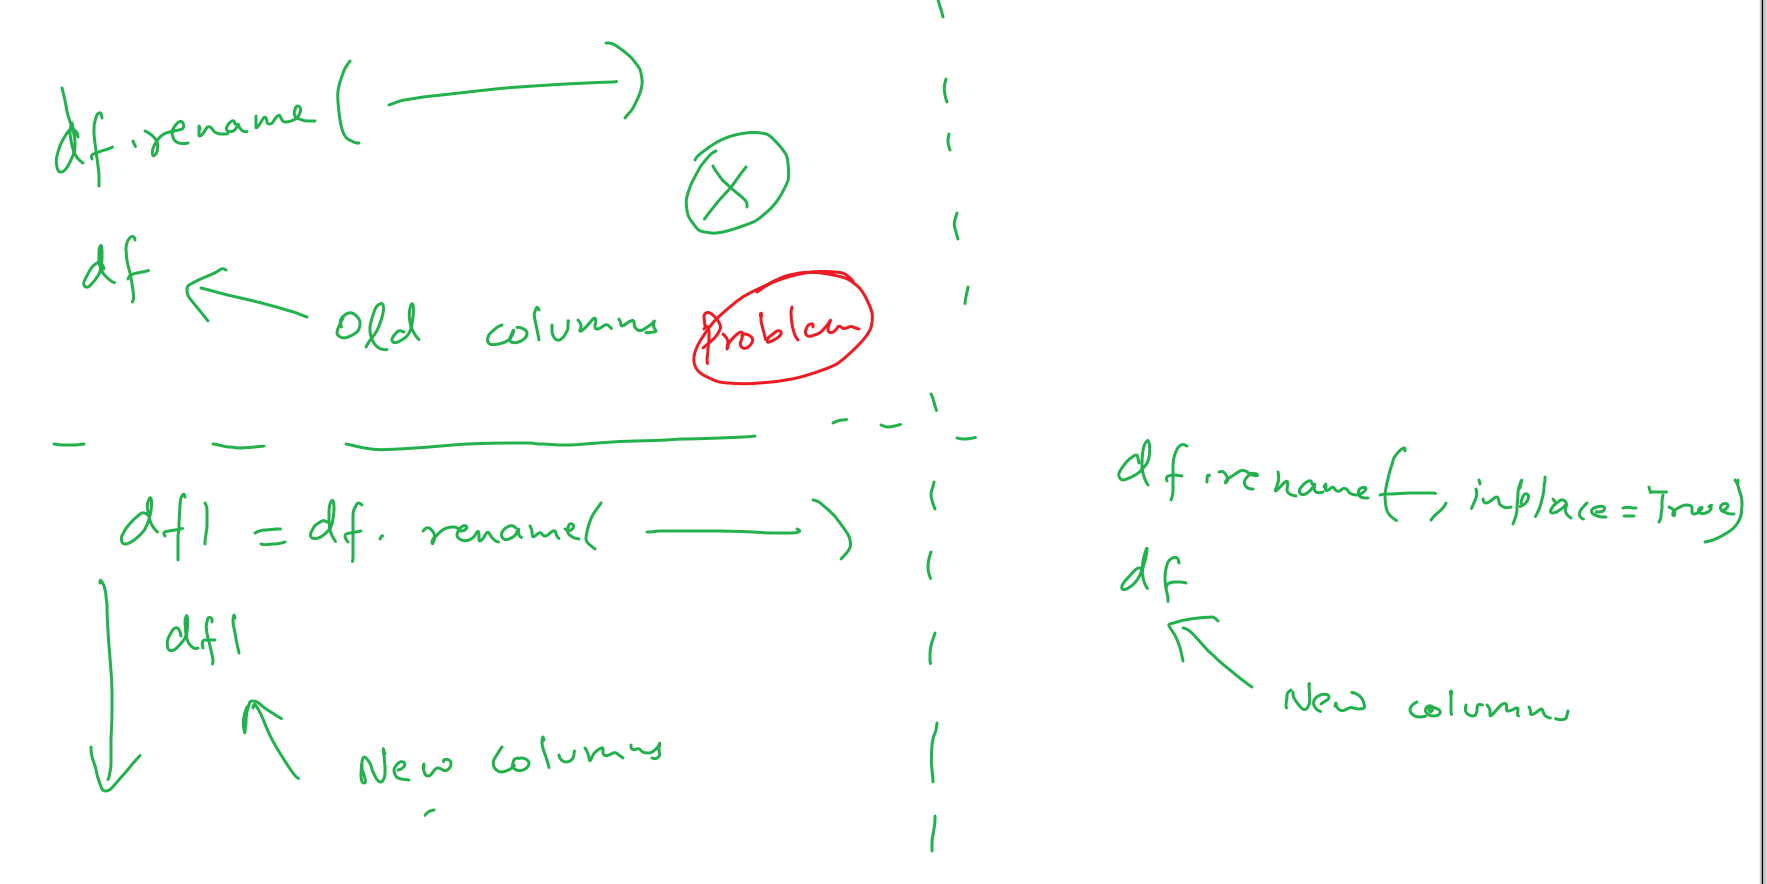 df.rename( )
X
df
Old columns Problem
df1 = df. rename( )
df1
New columns
df.rename( , inplace=True)
df
New columns